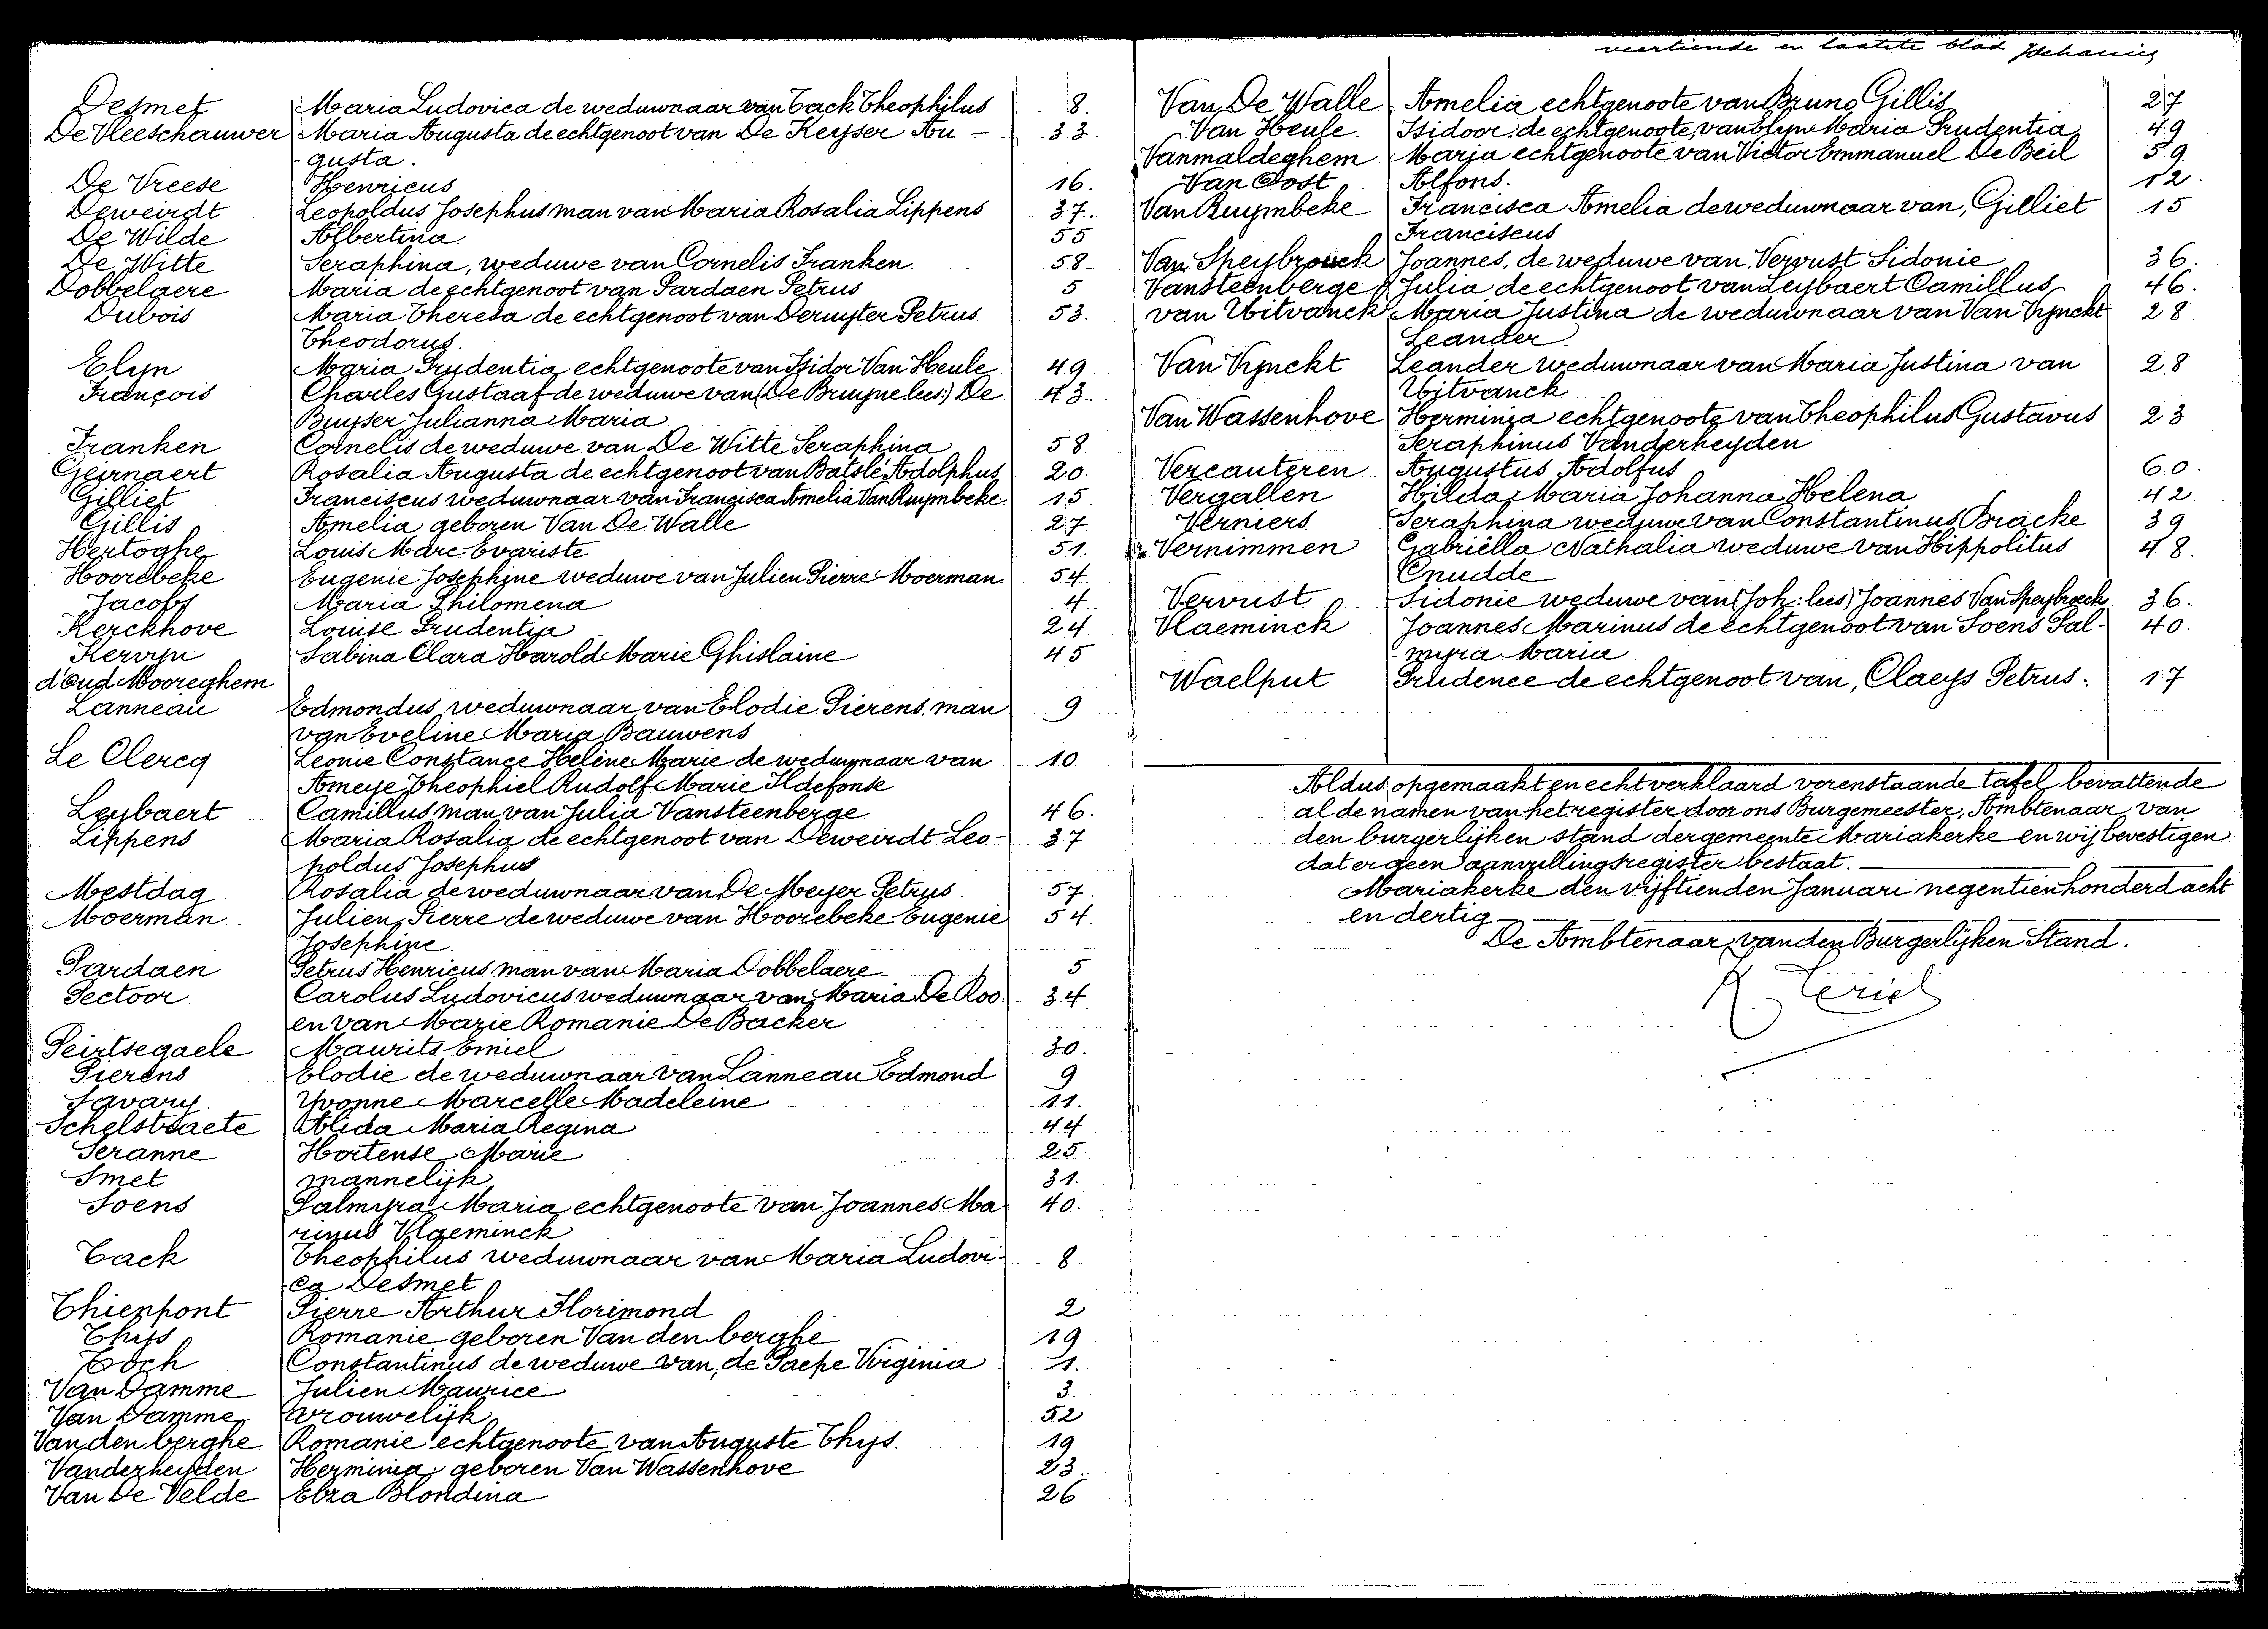 Desmet Maria Ludovica de weduwnaar van Tack Theophilus 8.
De Vleeschauwer Maria Augusta de echtgenoot van De Keyser Au- 33.
-gusta.
De Vreese Henricus 16.
Deweirdt Leopoldus Josephus man van Maria Rosalia Lippens 37.
De Wilde Albertina 55
De Witte Seraphina, weduwe van Cornelis Franken 58.
Dobbelaere Maria de echtgenoot van Pardaen Petrus 5.
Dubois Maria Theresa de echtgenoot van Deruyter Petrus 53.
Theodorus.
Elyn Maria Prudentia echtgenoote van Isidor Van Heule 49
François Charles Gustaaf de weduwe van (De Bruyne lees:) De 43.
Buyser Julianna Maria
Franken Cornelis de weduwe van De Witte Seraphina 58
Geirnaert Rosalia Augusta de echtgenoot van Batslé Adolphus 20.
Gilliet Franciscus weduwnaar van Francisca Amelia Van Ruymbeke 15
Gillis Amelia geboren Van De Walle 27
Hertoghe Louis Marc Evariste 51.
Hoorebeke Eugenie Josephine weduwe van Julien Pierre Moerman 54.
Jacobs Maria Philomena 4.
Kerckhove Louise Prudentia 24.
Kervyn Sabina Clara Harold Marie Ghislaine 45
d'Oud Mooreghem
Lanneau Edmondus weduwnaar van Elodie Pierens, man 9
van Eveline Maria Bauwens
Le Clercq Leonie Constance Helène Marie de weduwnaar van 10
Ameye Theophiel Rudolf Marie Ildefonse
Leybaert Camillus man van Julia Vansteenberge 46.
Lippens Maria Rosalia de echtgenoot van Deweirdt Leo- 37
poldus Josephus
Mestdag Rosalia de weduwnaar van De Meyer Petrus 57.
Moerman Julien Pierre de weduwe van Hoorebeke Eugenie 54.
Josephine
Pardaen Petrus Henricus man van Maria Dobbelaere 5
Pectoor Carolus Ludovicus weduwnaar van Maria De Roo 34.
en van Marie Romanie De Backer
Peirtsegaele Maurits Emiel 30.
Pierens Elodie de weduwnaar van Lanneau Edmond 9
Savary Yvonne Marcelle Madeleine 11.
Schelstraete Alida Maria Regina 44
Seranne Hortense Marie 25
Smet mannelijk 31.
Soens Palmyra Maria echtgenoote van Joannes Ma 40.
rinus Vlaeminck
Tack Theophilus weduwnaar van Maria Ludovi- 8
ca Desmet
Thienpont Pierre Arthur Florimond 2
Thys Romanie geboren Van den berghe 19
Toch Constantinus de weduwe van, de Paepe Virginia 1.
Van Damme Julien Maurice 3.
Van Damme vrouwelijk 52
Van den berghe Romanie echtgenoote van Auguste Thys. 19
Vanderheyden Herminia geboren Van Wassenhove 23.
Van De Velde Elza Blondina 26
veertiende en laatste blad
Van De Walle Amelia echtgenoote van Bruno Gillis 27
Van Heule Isidoor de echtgenoote van Elyn Maria Prudentia 49
Vanmaldeghem Maria echtgenoote van Victor Emmanuel De Beil 59.
Van Oost Alfons. 12.
Van Ruymbeke Francisca Amelia de weduwnaar van, Gilliet 15
Franciscus
Van Speybrouck Joannes, de weduwe van, Vervust Sidonie 36.
Vansteenberge Julia de echtgenoot van Leybaert Camillus 46.
van Uitvanck Maria Justina de weduwnaar van Van Vynckt 28.
Leander
Van Vynckt Leander weduwnaar van Maria Justina van 28
Uitvanck
Van Wassenhove Herminia echtgenoote van Theophilus Gustavus 23
Seraphinus Vanderheyden
Vercauteren Augustus Adolfus 60.
Vergallen Hilda Maria Johanna Helena 42
Verniers Seraphina weduwe van Constantinus Bracke 39
Vernimmen Gabriëlla Nathalia weduwe van Hippolitus 48.
Cnudde
Vervust Sidonie weduwe van (Joh: lees) Joannes Van Speybroeck 36.
Vlaeminck Joannes Marinus de echtgenoot van Soens Pal- 40.
-myra Maria
Waelput Prudence de echtgenoot van, Claeys Petrus. 17
Aldus opgemaakt en echt verklaard vorenstaande tafel, bevattende
al de namen van het register door ons Burgemeester, Ambtenaar van
den burgerlijken stand der gemeente Mariakerke en wij bevestigen
dat er geen aanvullingsregister bestaat.
Mariakerke den vijftienden Januari negentienhonderd acht
en dertig
De Ambtenaar van den Burgerlijken Stand.